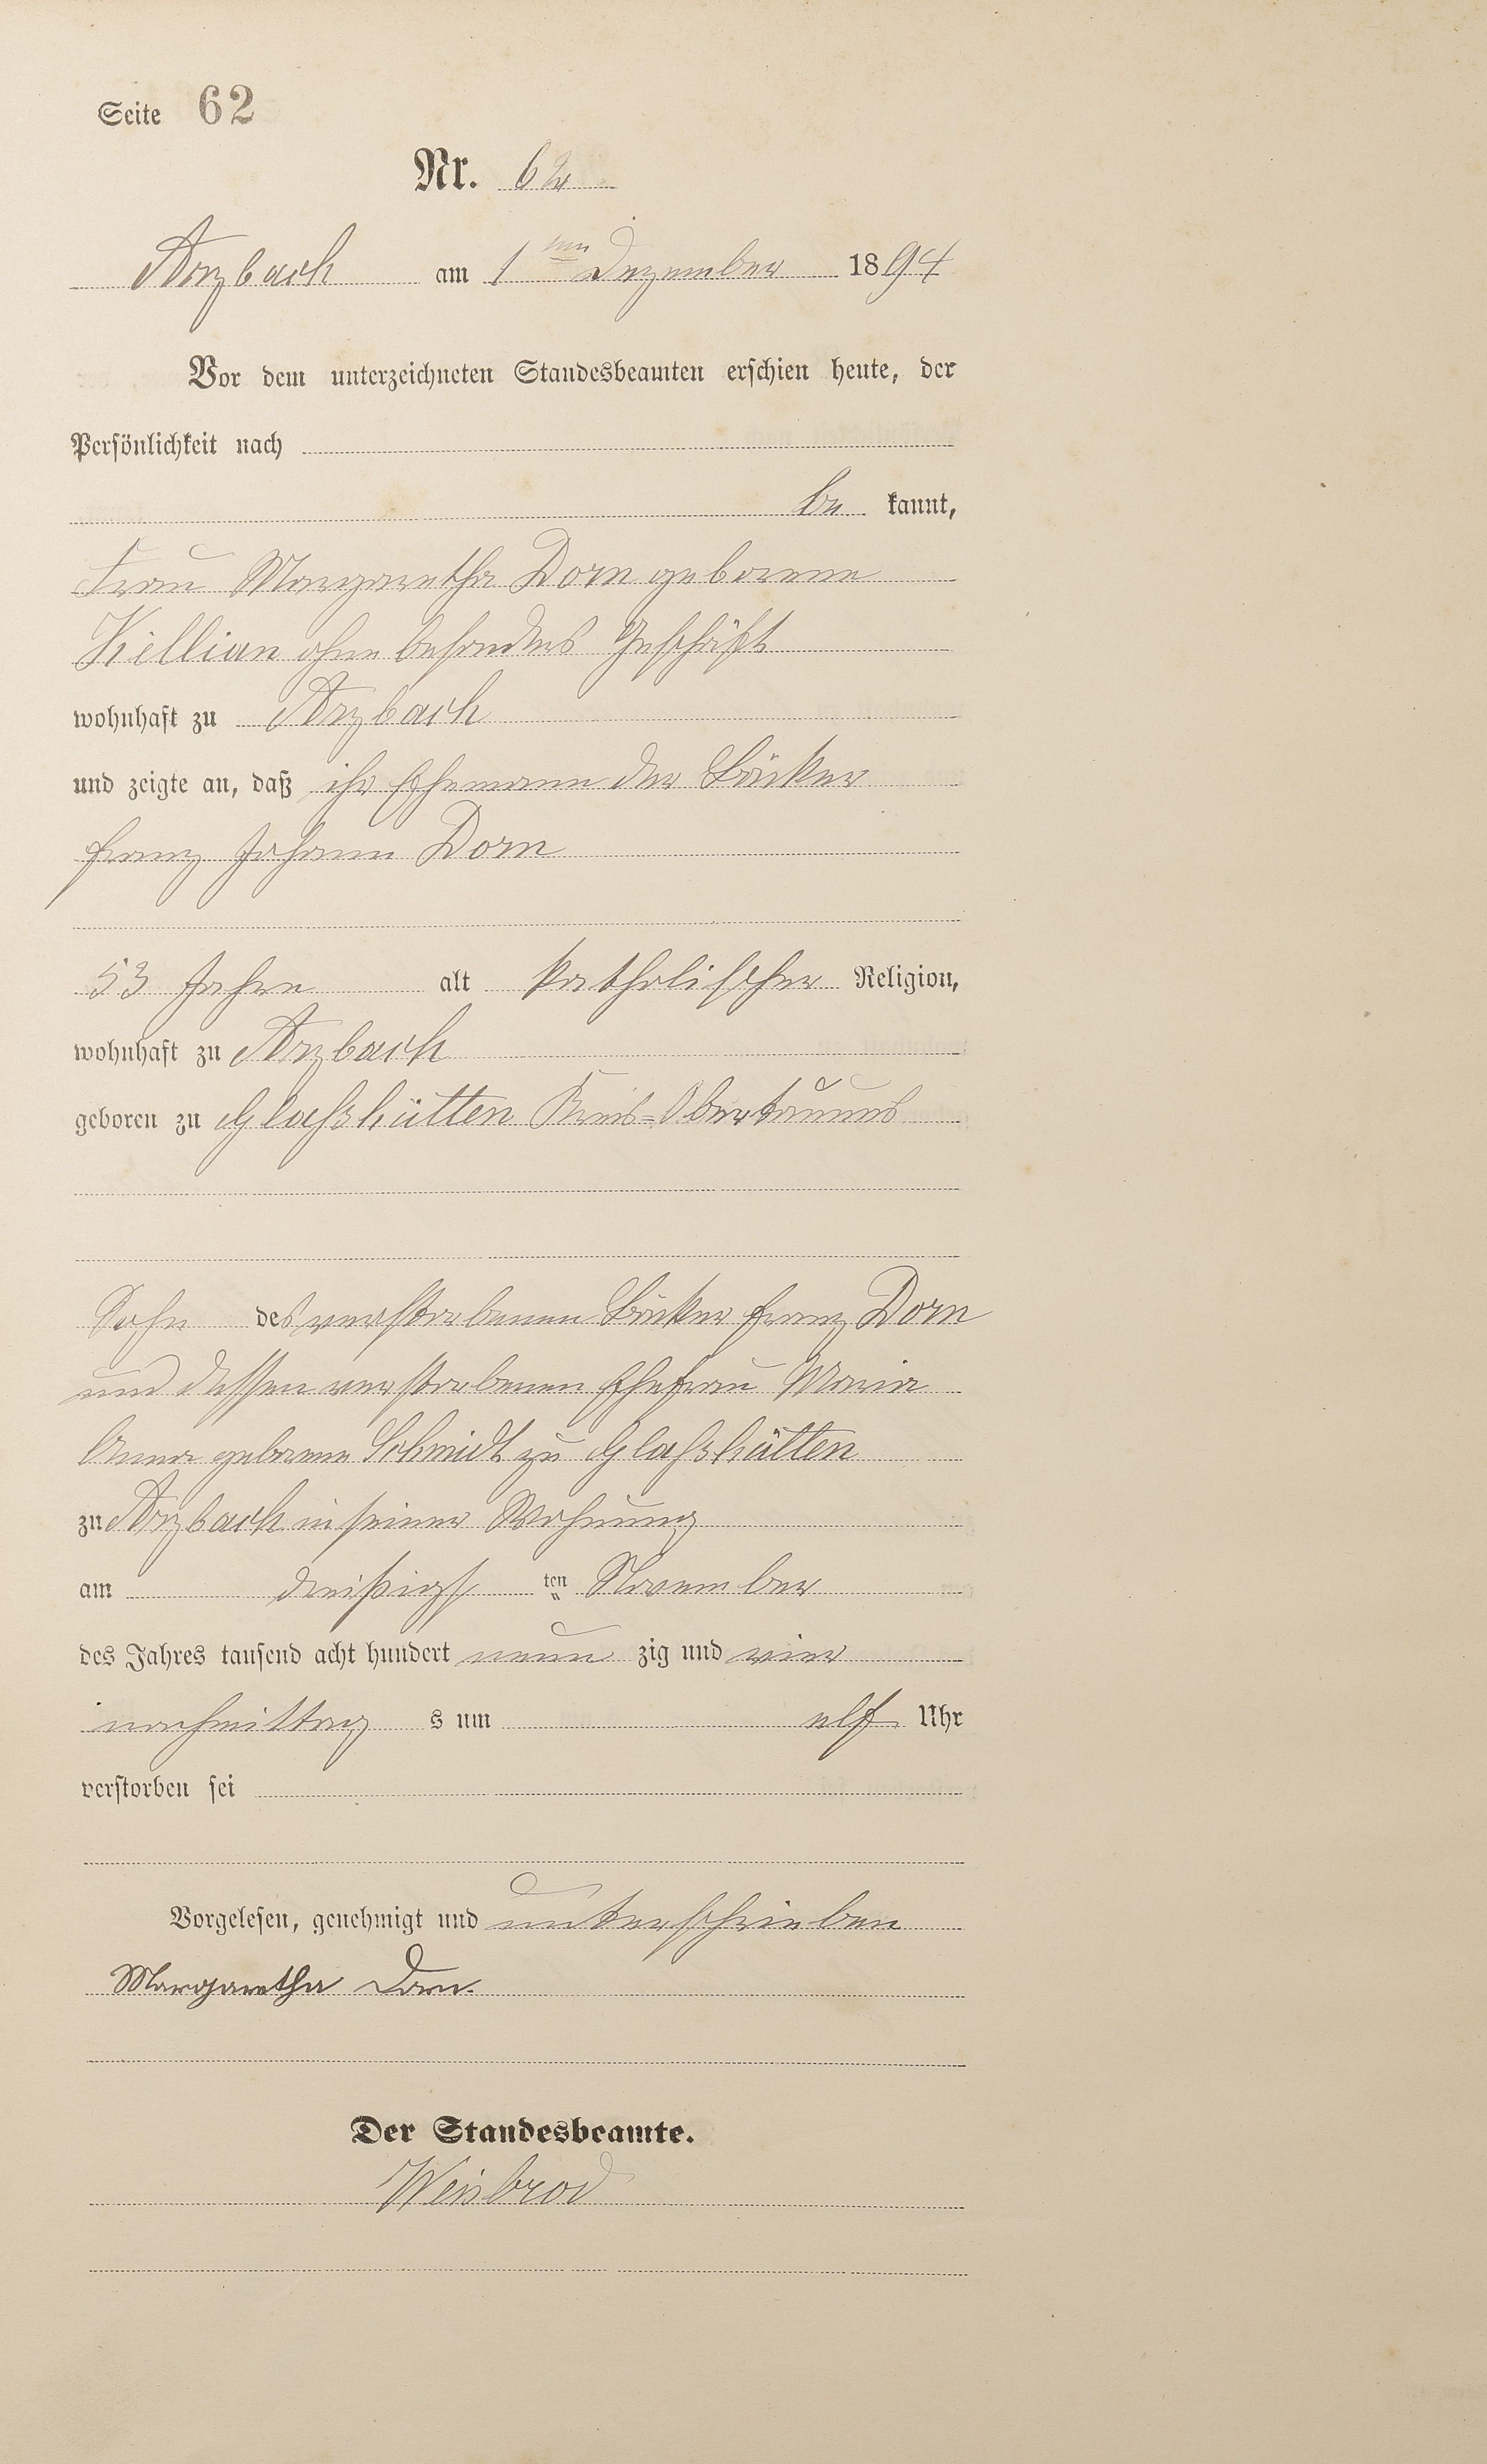 Seite 62
Nr. 62
Arzbach am 1ten Dezember 1894
Vor dem unterzeichneten Standesbeamten erschien heute, der
Persönlichkeit nach
be kannt,
Frau Margaretha Dorn geborene
Killian ohne besonderes Geschäft
wohnhaft zu Arzbach
und zeigte an, daß ihr Ehemann der Bäcker
Franz Johann Dorn
53 Jahre alt katholischer Religion,
wohnhaft zu Arzbach
geboren zu Glaßhütten Kreis-Obertaunus
Sohn des verstorbenen Bäcker Franz Dorn
und dessen verstorbenen Ehefrau Maria
Anna geborene Schmidt zu Glaßhütten
zu Arzbach in seiner Wohnung
am dreißigst ten November
des Jahres tausend acht hundert neun zig und vier
nachmittag s um elf Uhr
verstorben sei
Vorgelesen, genehmigt und unterschrieben
Margaretha Dorn.
Der Standesbeamte.
Weisbrod